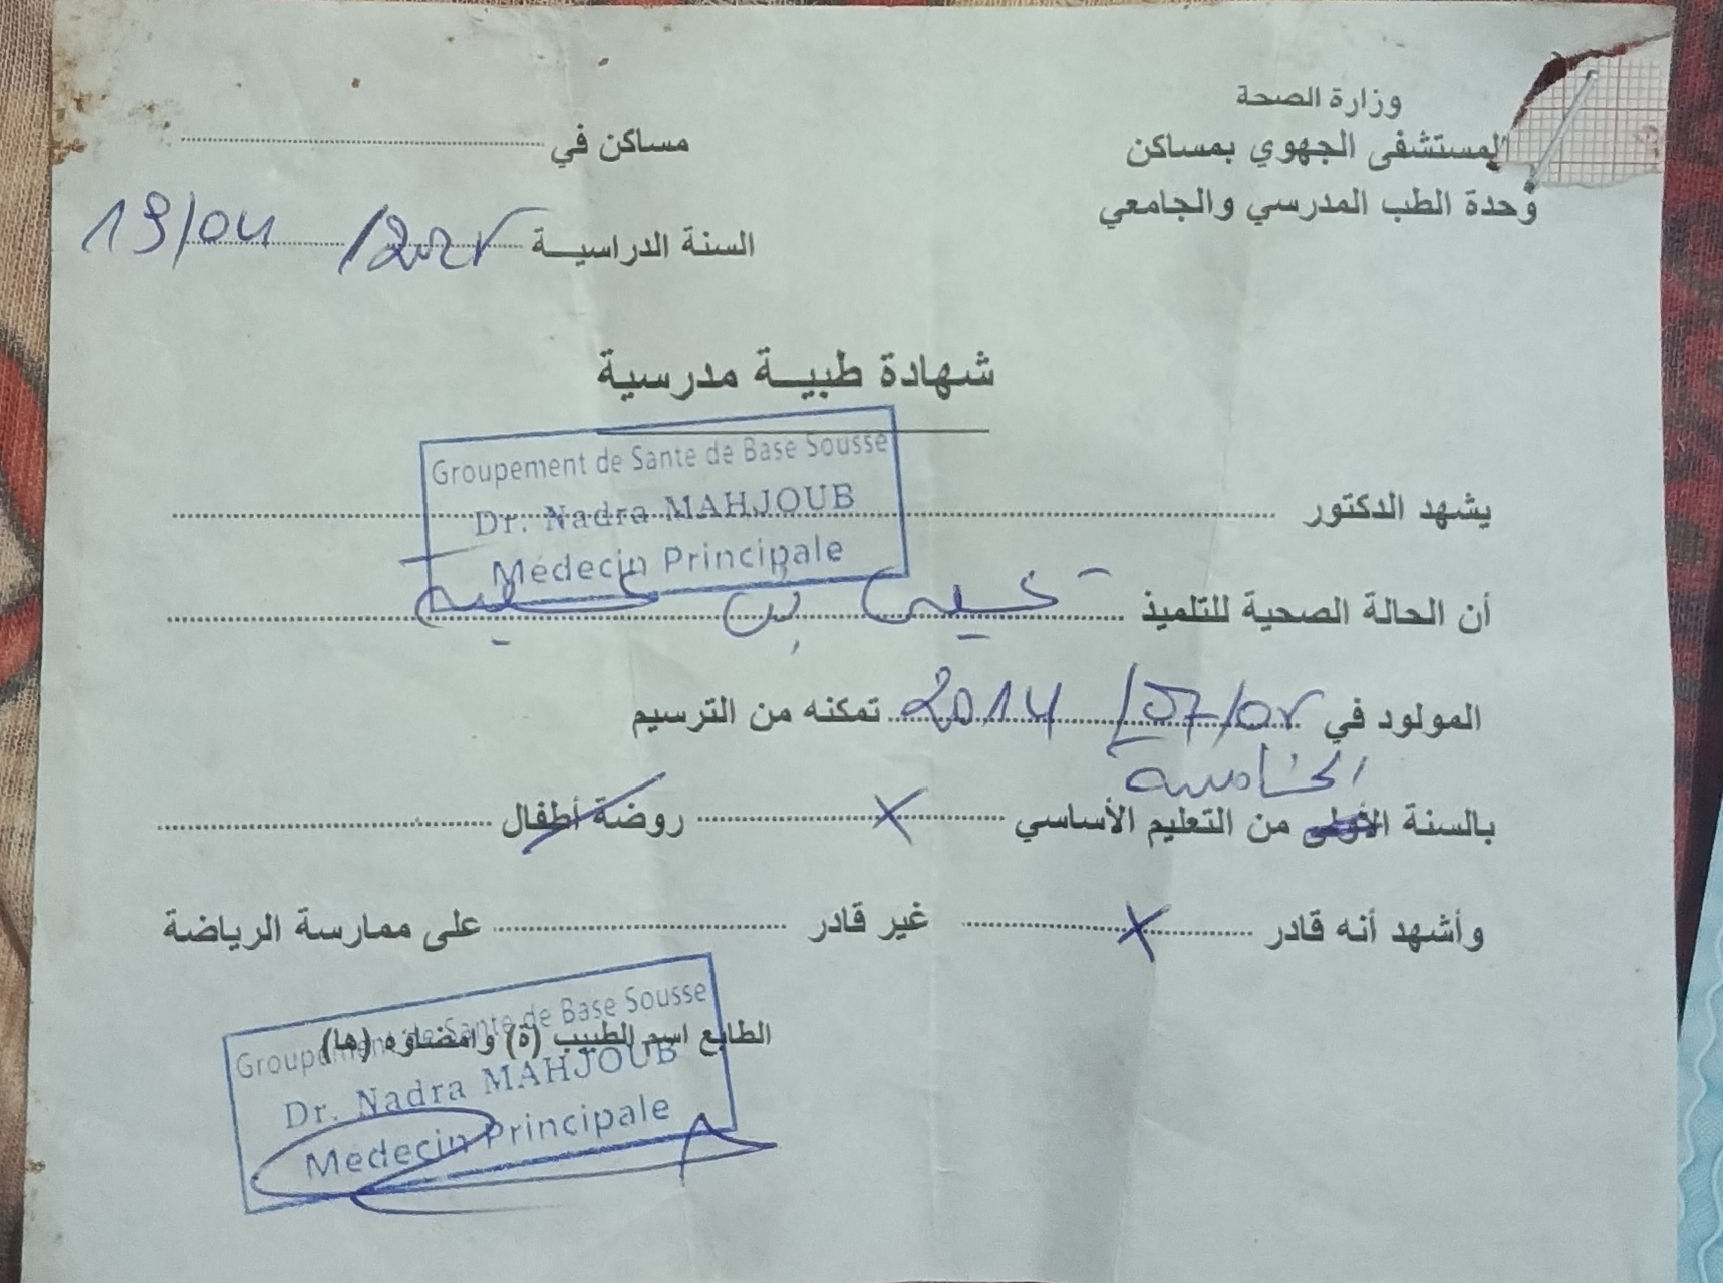 وزارة الصحة
المستشفى الجهوي بمساكن
وحدة الطب المدرسي والجامعي
مساكن في
السنة الدراسية 19/04/202
شهادة طبية مدرسية
Groupement de Sante de Base Sousse
Dr. Nadra MAHJOUB
Médecin Principale
يشهد الدكتور
أن الحالة الصحية للتلميذ بن
المولود في 07/ 2014 تمكنه من الترسيم
الخامسة
بالسنة الأولى من التعليم الأساسي X روضة أطفال
وأشهد أنه قادر X غير قادر على ممارسة الرياضة
الطابع اسم الطبيب (ة) وامضاؤه (ها)
Groupement de Sante de Base Sousse
Dr. Nadra MAHJOUB
Médecin Principale